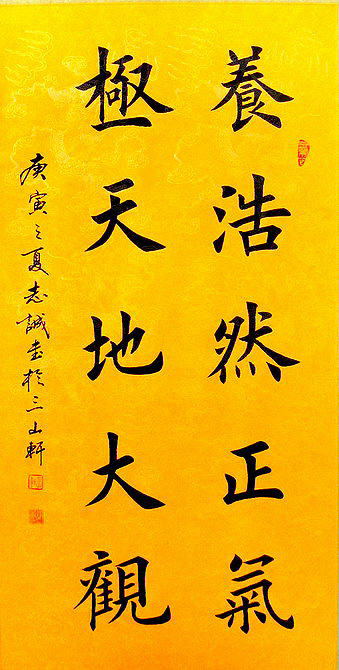 養浩然正氣
極天地大觀
庚寅之夏志誠書於三山軒